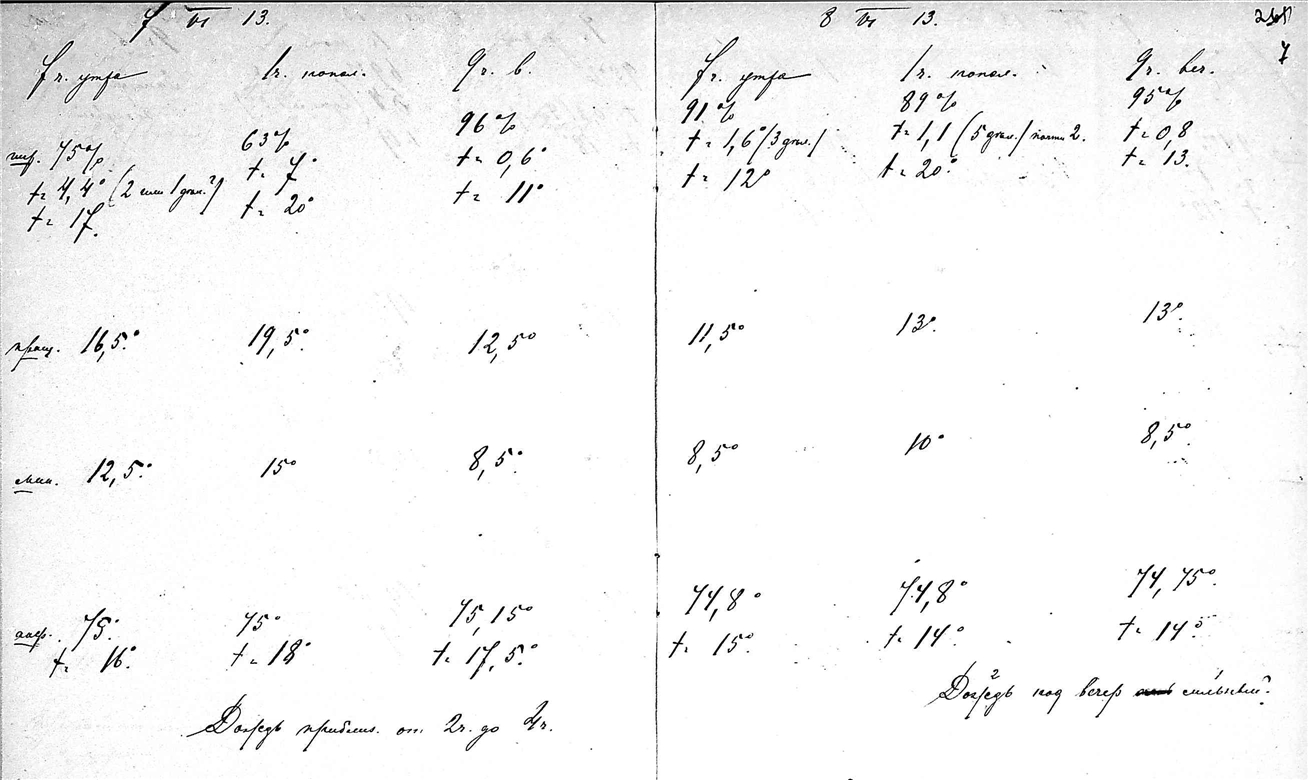 7 VI 13.
7 ч. утра 1 ч. попол. 9 ч. в.
гигр. 75% 63% 96%
t = 4,4° (2 или 1 грам.?) t = 7° t = 0,6°
t = 17. t = 20° t = 11°
пращ. 16,5° 19,5° 12,5°
мин. 12,5° 15° 8,5°
75° 75° 75,15°
t = 16° t = 18° t = 17,5°
Дождь приблиз. от 2 ч. до 4 ч.
8 VI 13.
7
7 ч. утра 1 ч. попол. 9 ч. веч.
91% 89% 95%
t = 1,6° (3 грам.) t = 1,1 (5 грам.) почти 2. t = 0,8
t = 12° t = 20° t = 13.
11,5° 13° 13°
8,5° 10° 8,5°
74,8° 74,8° 74,75°
t = 15° t = 14° t = 14°
Дождь под вечер сильный.